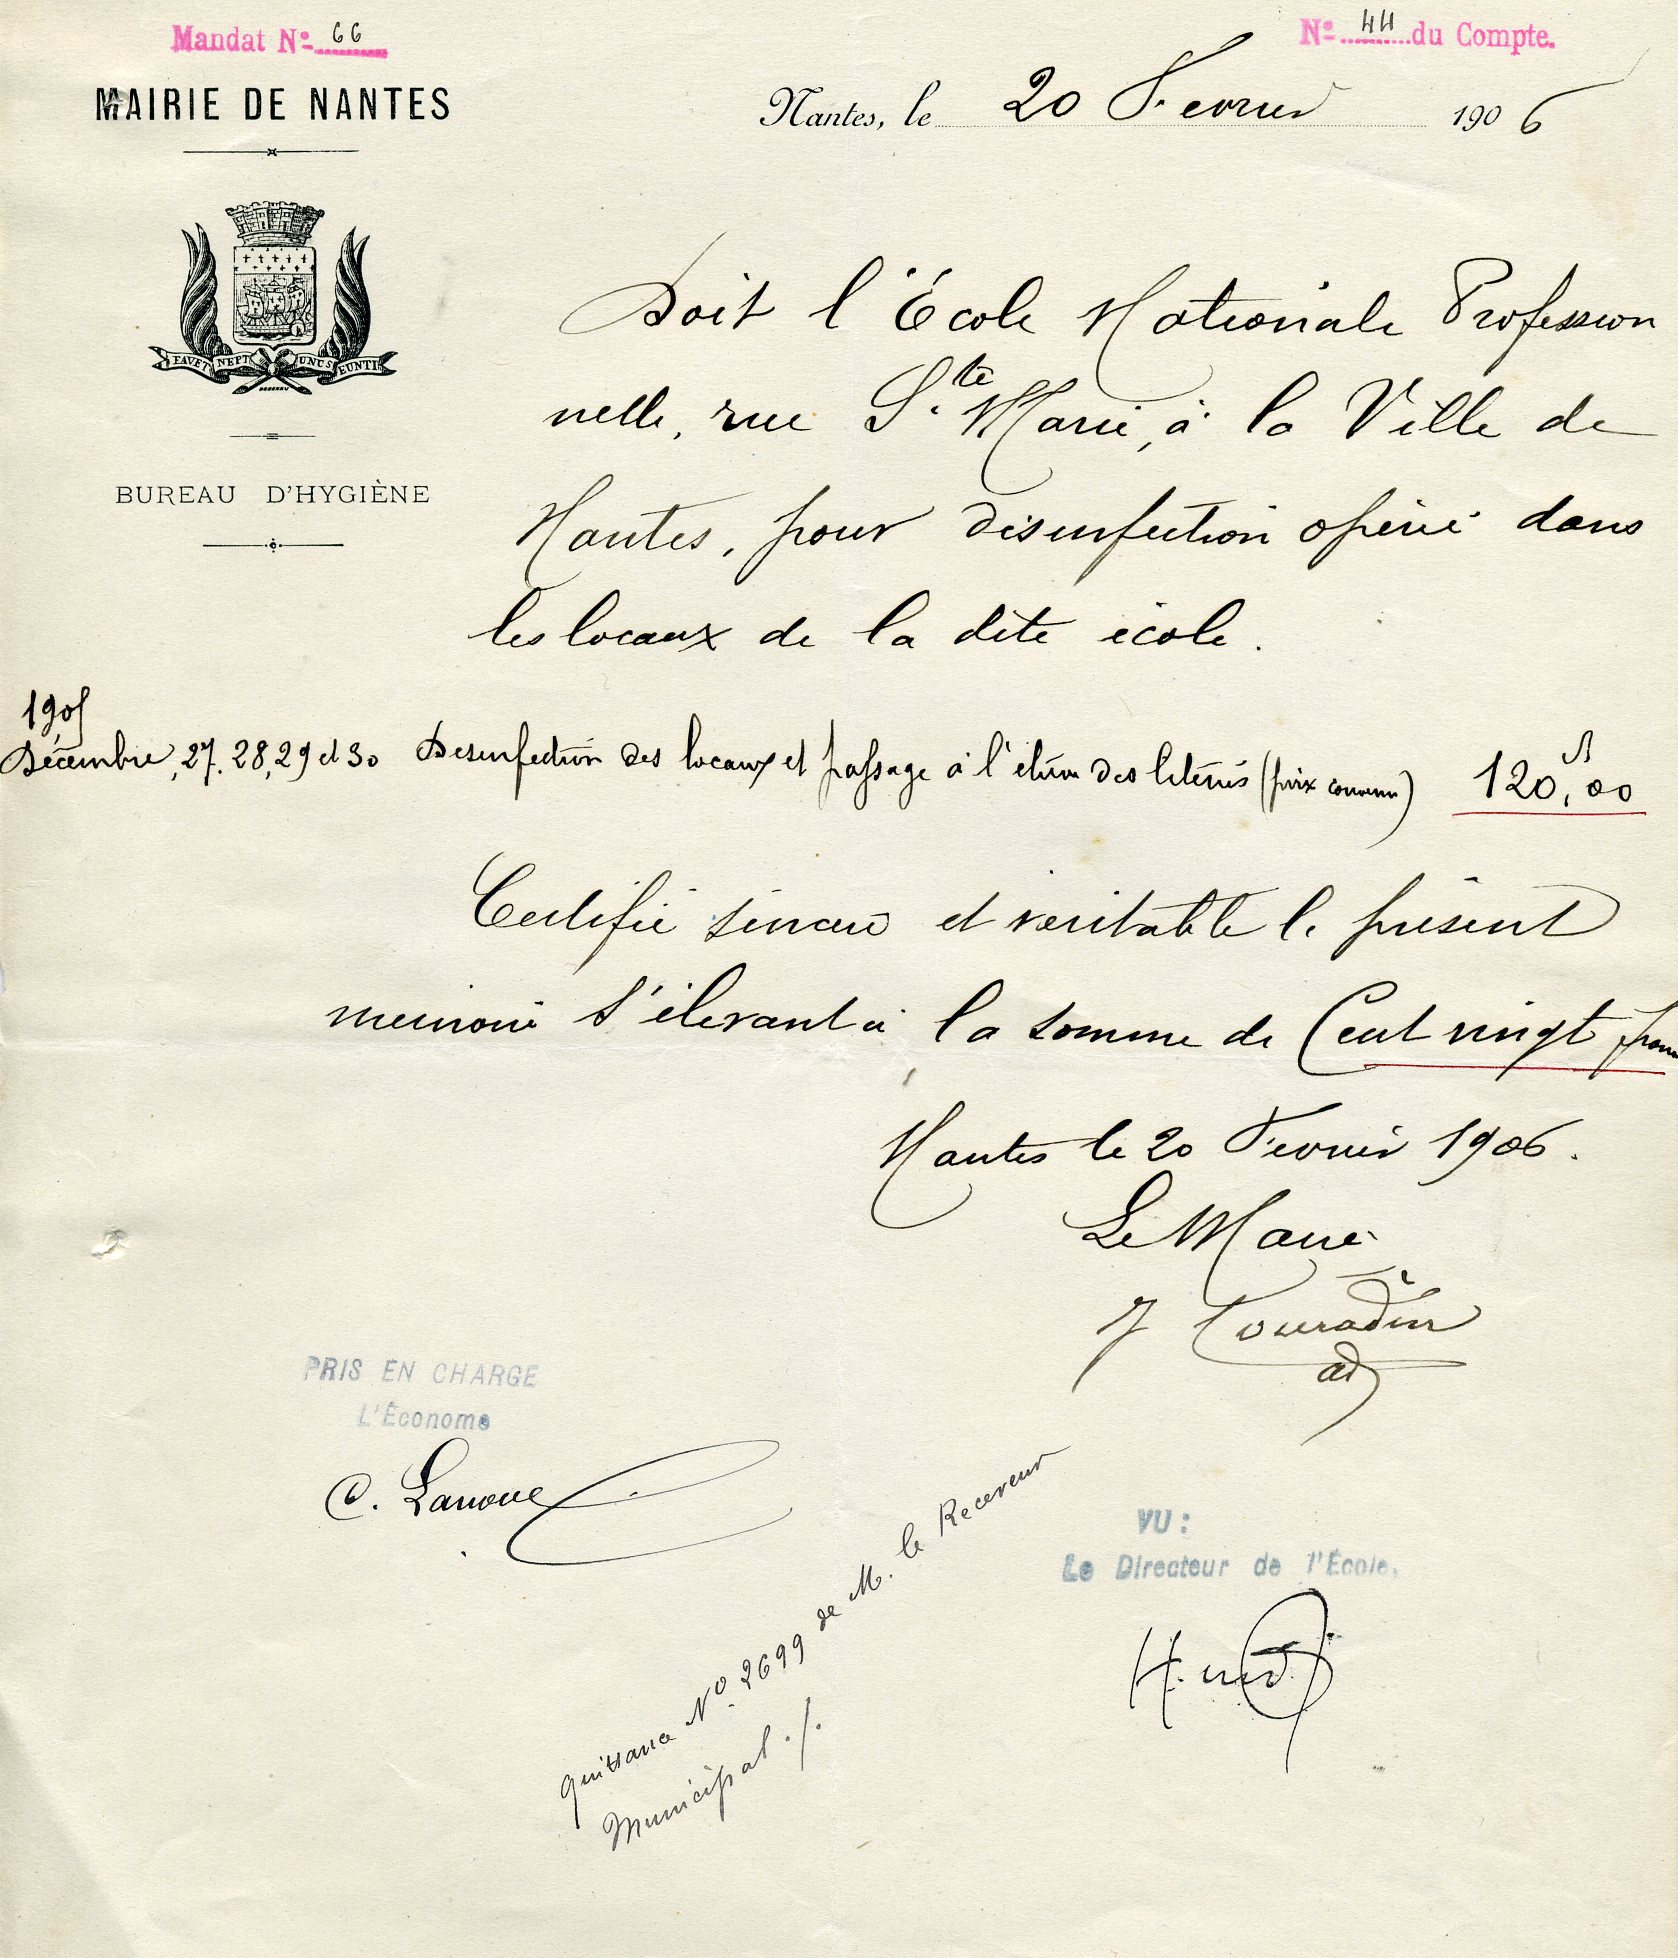 Mandat Nº 66
Nº 44 du Compte.
MAIRIE DE NANTES
Nantes, le 20 Fevrier 1906
FAVET NEPTUNUS EUNTI
BUREAU D'HYGIÈNE
Doit l'École Nationale Profession
nelle, rue Ste Marie, à la Ville de
Nantes, pour désinfection opérée dans
les locaux de la dite école.
1905
Décembre, 27, 28, 29 et 30 Desinfection des locaux et passage à l'étuve des literies (prix convenu) 120f,00
Certifié sincère et véritable le présent
memoire s'élevant à la somme de Cent vingt francs
Nantes le 20 Fevrier 1906.
Le Maire
ad
PRIS EN CHARGE
L'Économe
C. Lanoue
Quittance Nº 2699 de M. le Receveur
Municipal ./.
VU :
Le Directeur de l'École,